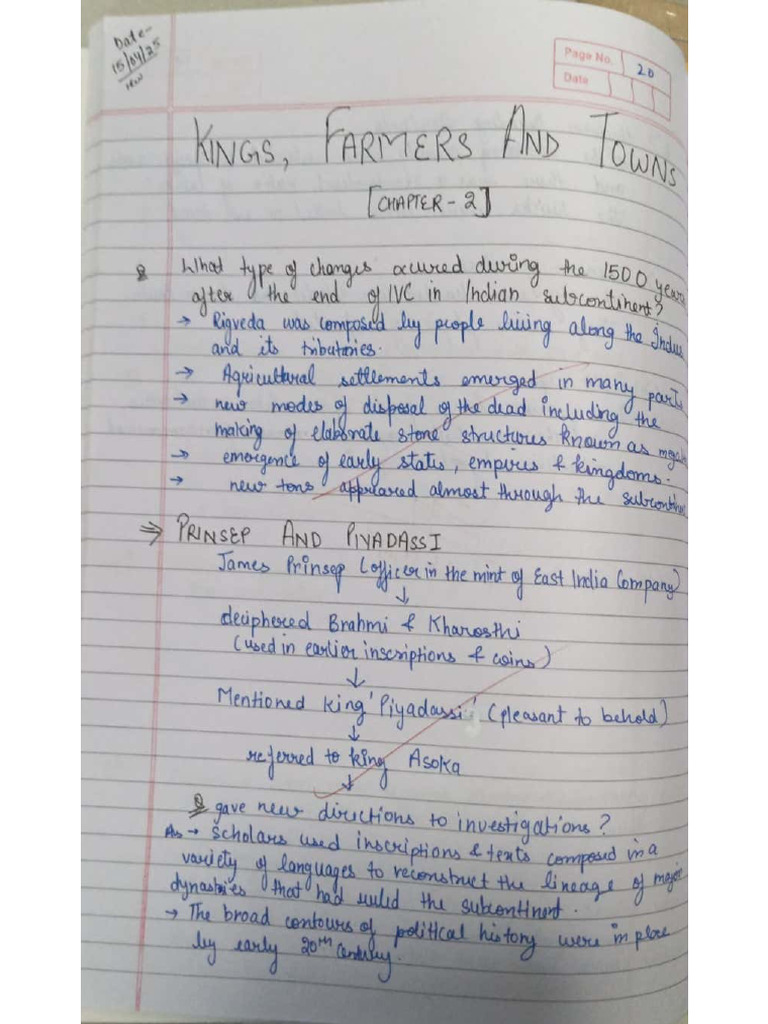 Date-
15/04/25
Page No. 20
Date
KINGS, FARMERS AND TOWNS
[CHAPTER-2]
Q What type of changes occured during the 1500 years
after the end of IVC in Indian subcontinent?
→ Rigveda was composed by people living along the Indus
and its tributories.
→ Agricultural settlements emerged in many parts
→ new modes of disposal of the dead including the
making of elaborate stone structures known as
→ emergence of early states, empires & kingdoms.
→ new tons appeared almost through the
⇒ PRINSEP AND PIYADASSI
James Prinsep (officer in the mint of East India Company)
↓
deciphered Brahmi & Kharosthi
(used in earlier inscriptions & coins)
↓
Mentioned king 'Piyadassi' (pleasant to behold)
↓
referred to king Asoka
↓
Q gave new directions to investigations?
As → Scholars used inscriptions & texts composed in a
variety of languages to reconstruct the lineage of major
dynasties that had ruled the subcontinent.
→ The broad contours of political history were in place
by early 20th century.